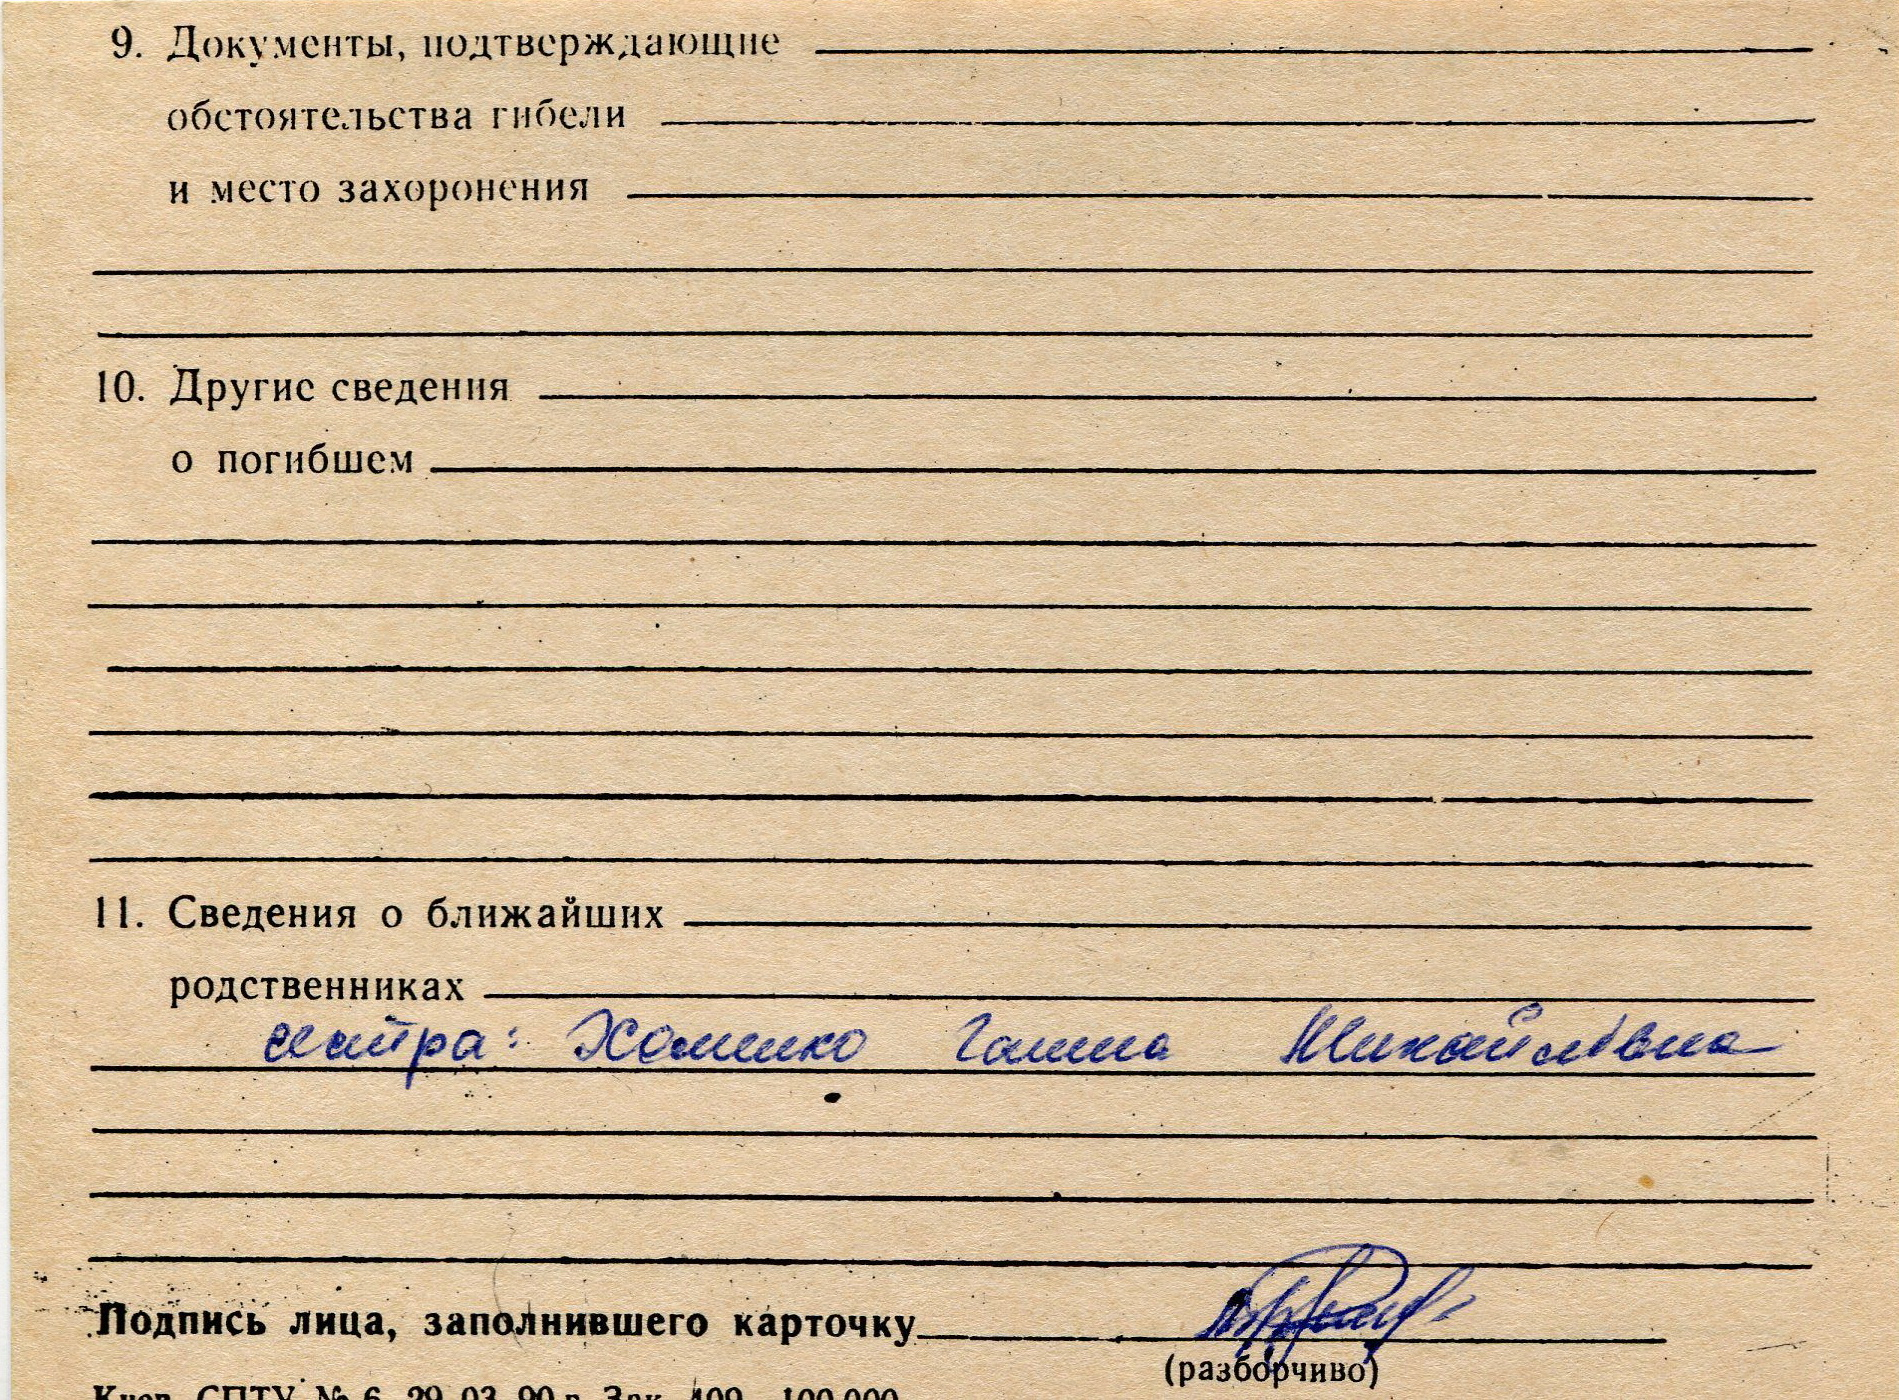 9. Документы, подтверждающие
обстоятельства гибели
и место захоронения
10. Другие сведения
о погибшем
11. Сведения о ближайших
родственниках
сестра: Хоменко Галина Михайловна
Подпись лица, заполнившего карточку
(разборчиво)
Киев. СПТУ № 6. 29. 03. 90 г. Зак. 409—100.000